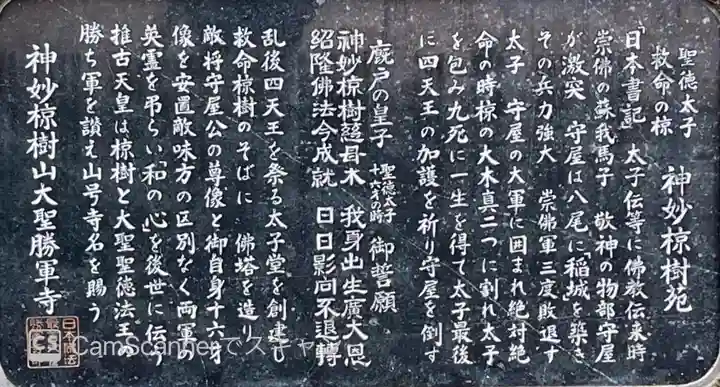 聖徳太子
救命の椋
神妙椋樹苑
『日本書記』 太子伝等に佛教伝来時
崇佛の蘇我馬子 敬神の物部守屋
が激突 守屋は八尾に「稲城」を築き
その兵力強大 崇佛軍三度敗退す
太子 守屋の大軍に囲まれ絶対絶
命の時椋の大木真二つに割れ太子
を包み九死に一生を得て太子最後
に四天王の加護を祈り守屋を倒す
厩戸の皇子 聖徳太子
十六才の時 御誓願
神妙椋樹慈母木 我身出生廣大恩
紹隆佛法今成就 日日影向不退轉
乱後四天王を祭る太子堂を創建し
救命椋樹のそばに 佛塔を造り
敵将守屋公の尊像と御自身十六才
像を安置敵味方の区別なく両軍の
英霊を弔らい「和の心」を後世に伝う
推古天皇は椋樹と大聖聖徳法王の
勝ち軍を讃え山号寺名を賜う
神妙椋樹山大聖勝軍寺
CamScannerでスキャ